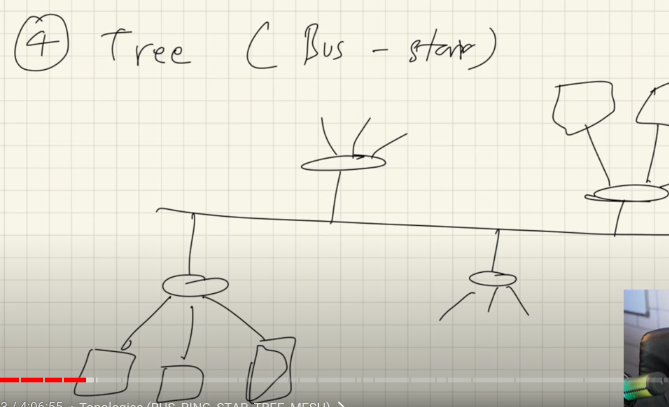 ④ Tree (Bus - star)
3 / 4:06:55 • Topologies (BUS, RING, STAR, TREE, MESH) >